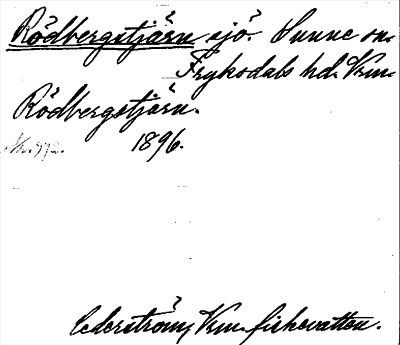 Rödbergstjärn sjö. Sunne sn.
Fryksdals hd. Vrm.
Rödbergstjärn.
1896.
Cederström, Vrm. fiskevatten.